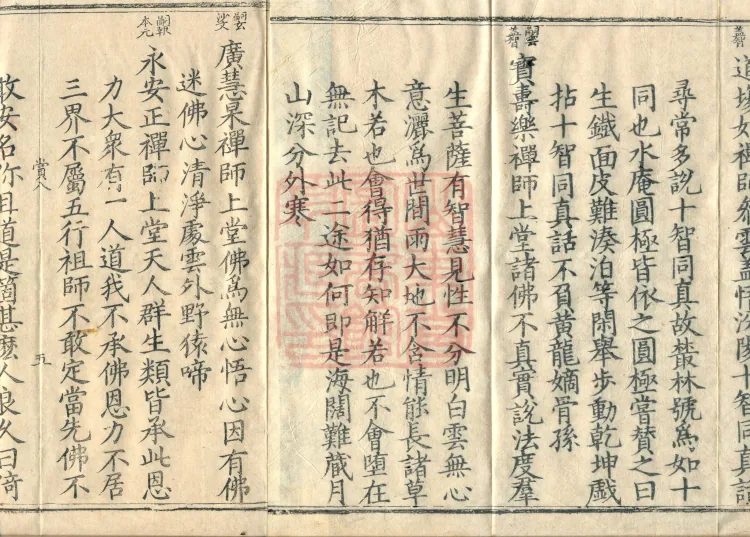 道場如禪師參雲蓋悟汾陽十智同真話
尋常多說十智同真故叢林號爲如十
同也水庵圓極皆依之圓極嘗贊之曰
生鐵面皮難湊泊等閑舉步動乾坤戲
拈十智同真話不負黃龍嫡骨孫
嗣雲蓋智
寶壽樂禪師上堂諸佛不真實說法度羣
生菩薩有智慧見性不分明白雲無心
意灑爲世間雨大地不含情能長諸草
木若也會得猶存知解若也不會墮在
無記去此二途如何即是海闊難藏月
山深分外寒
廣慧杲禪師上堂佛爲無心悟心因有佛
迷佛心清淨處雲外野猿啼
嗣報本元
永安正禪師上堂天人群生類皆承此恩
力大衆有一人道我不承佛恩力不居
三界不屬五行祖師不敢定當先佛不
賞八 五
敢安名你且道是箇甚麽人良久曰倚